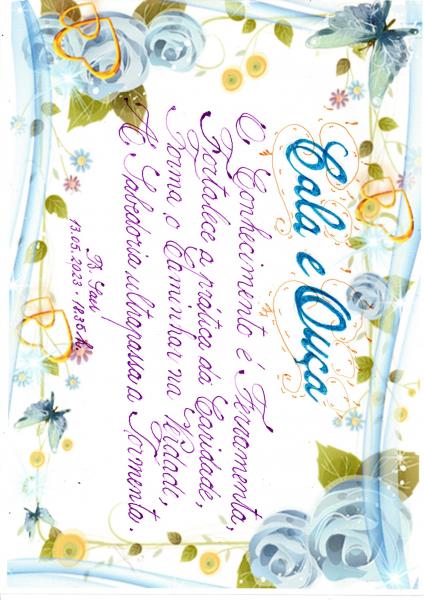 Cala e Ouça
O Conhecimento é Ferramenta,
Fortalece a prática da Caridade,
Forma o Caminhar na Verdade,
A Sabedoria ultrapassa a Tormenta.
13.05.2023 - 18:35 h.